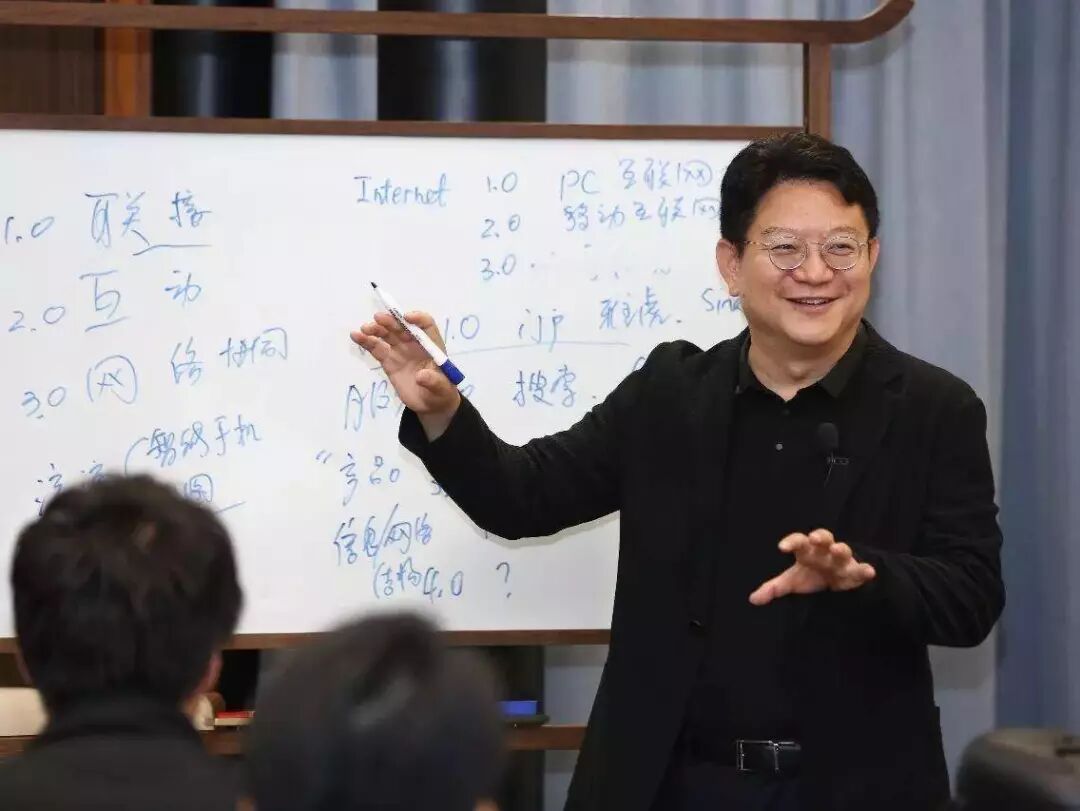 1.0 联接
2.0 互动
3.0 网络协同
智能手机
Internet 1.0 PC互联网
2.0 移动互联网
3.0 ...
1.0 门户 雅虎. Sina
搜索.
信息/网络
结构4.0 ?